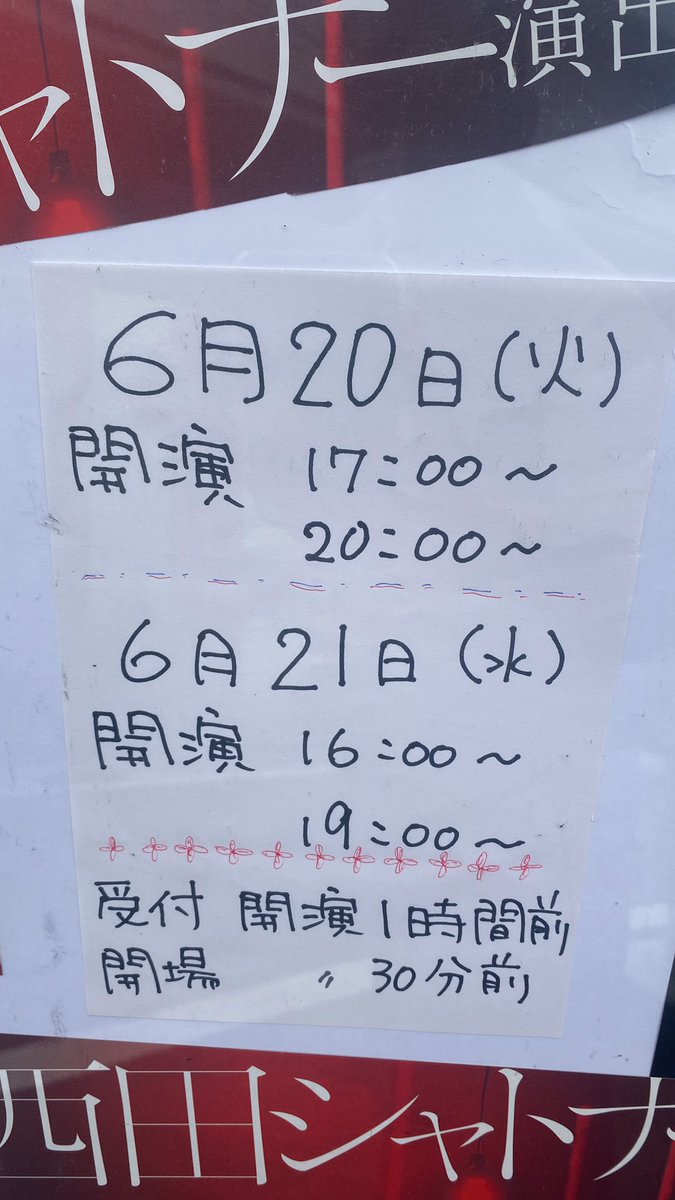 シャトナー演出
6月20日(火)
開演 17:00〜
20:00〜
6月21日(水)
開演 16:00〜
19:00〜
受付 開演1時間前
開場 〃 30分前
西田シャトナ